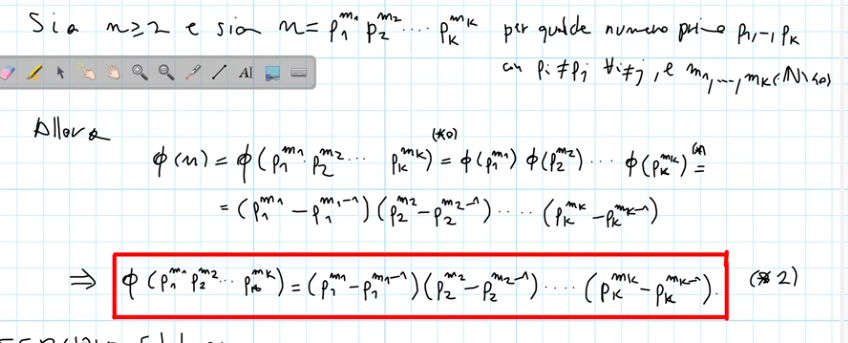 Sia n≥2 e sia n = p₁^m₁ p₂^m₂ ... p_K^m_K per qualche numero primo p₁,..,p_K
con pᵢ≠pⱼ ∀i≠j, e m₁,...,m_K∈ℕ\{0}
AI
Allora
ϕ(n) = ϕ(p₁^m₁ · p₂^m₂ ... p_K^m_K) (*0) = ϕ(p₁^m₁) ϕ(p₂^m₂) ... ϕ(p_K^m_K) =
= (p₁^m₁ − p₁^(m₁−1)) (p₂^m₂ − p₂^(m₂−1)) ..... (p_K^m_K − p_K^(m_K−1))
⇒ ϕ(p₁^m₁ p₂^m₂ ... p_K^m_K) = (p₁^m₁ − p₁^(m₁−1)) (p₂^m₂ − p₂^(m₂−1)) .... (p_K^m_K − p_K^(m_K−1)). (*2)